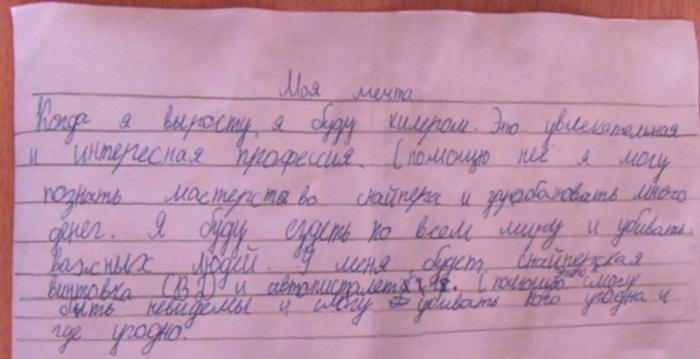 Моя мечта
Когда я вырасту, я буду килером. Это увлекательная
и интересная професшия. С помощю неё я могу
познать мастерство снайпера и зарабатовать много
денег. Я буду ездеть по всем миру и убивать
важных людей. У меня будет снайперская
винтовка и автопистолет. С помощю этого смогу
быть невидемы и смогу убивать кого угодна и
где угодно.